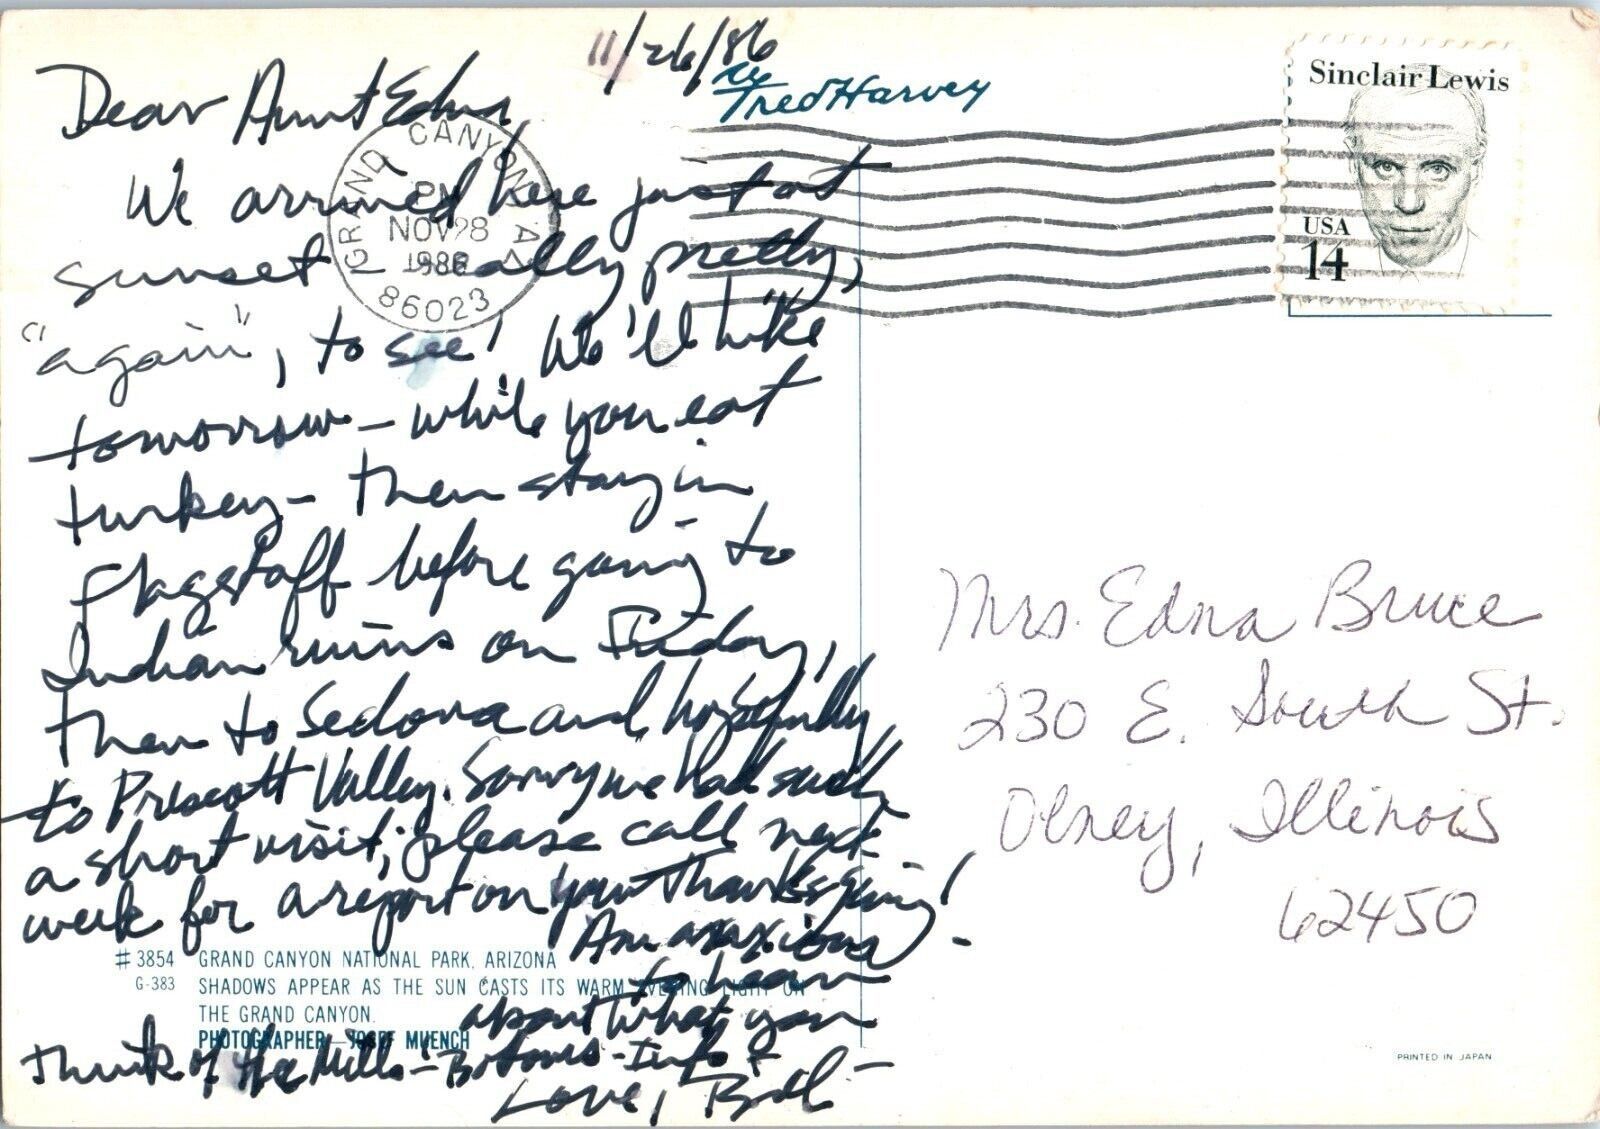 11/26/86
by Fred Harvey
Dear Aunt Edna,
We arrived here just at
sunset really pretty,
"again", to see! We'll hike
tomorrow – while you eat
turkey – then stay in
Flagstaff before going to
Indian ruins on Friday,
then to Sedona and, hopefully
to Prescott Valley. Sorry we had such
a short visit; please call next
week for a report on your Thanksgiving!
Am anxious
to hear
about what you
think of the Mills – Info +
Love, Bob
GRAND CANYON AZ
PM
NOV 28
1986
86023
Sinclair Lewis
USA
14
Mrs. Edna Bruce
230 E. South St.
Olney, Illinois
62450
# 3854 GRAND CANYON NATIONAL PARK, ARIZONA
G-383 SHADOWS APPEAR AS THE SUN CASTS ITS WARM EVENING LIGHT ON
THE GRAND CANYON.
PHOTOGRAPHER—JOSEF MUENCH
PRINTED IN JAPAN